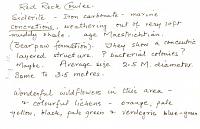 Red Rock Coulee.
Siderite - Iron carbonate - marine
concretions, weathering out of very soft
muddy shale. age Maestrichtian.
(Bearpaw formation). They show a concentric
layered structure. ? bacterial colonies?
Maybe. Average size 2.5 M. diameter.
Some to 3.5 metres.
Wonderful wildflowers in this area -
& colourful lichens - orange, pale
yellow, black, pale green & verdigris blue-green